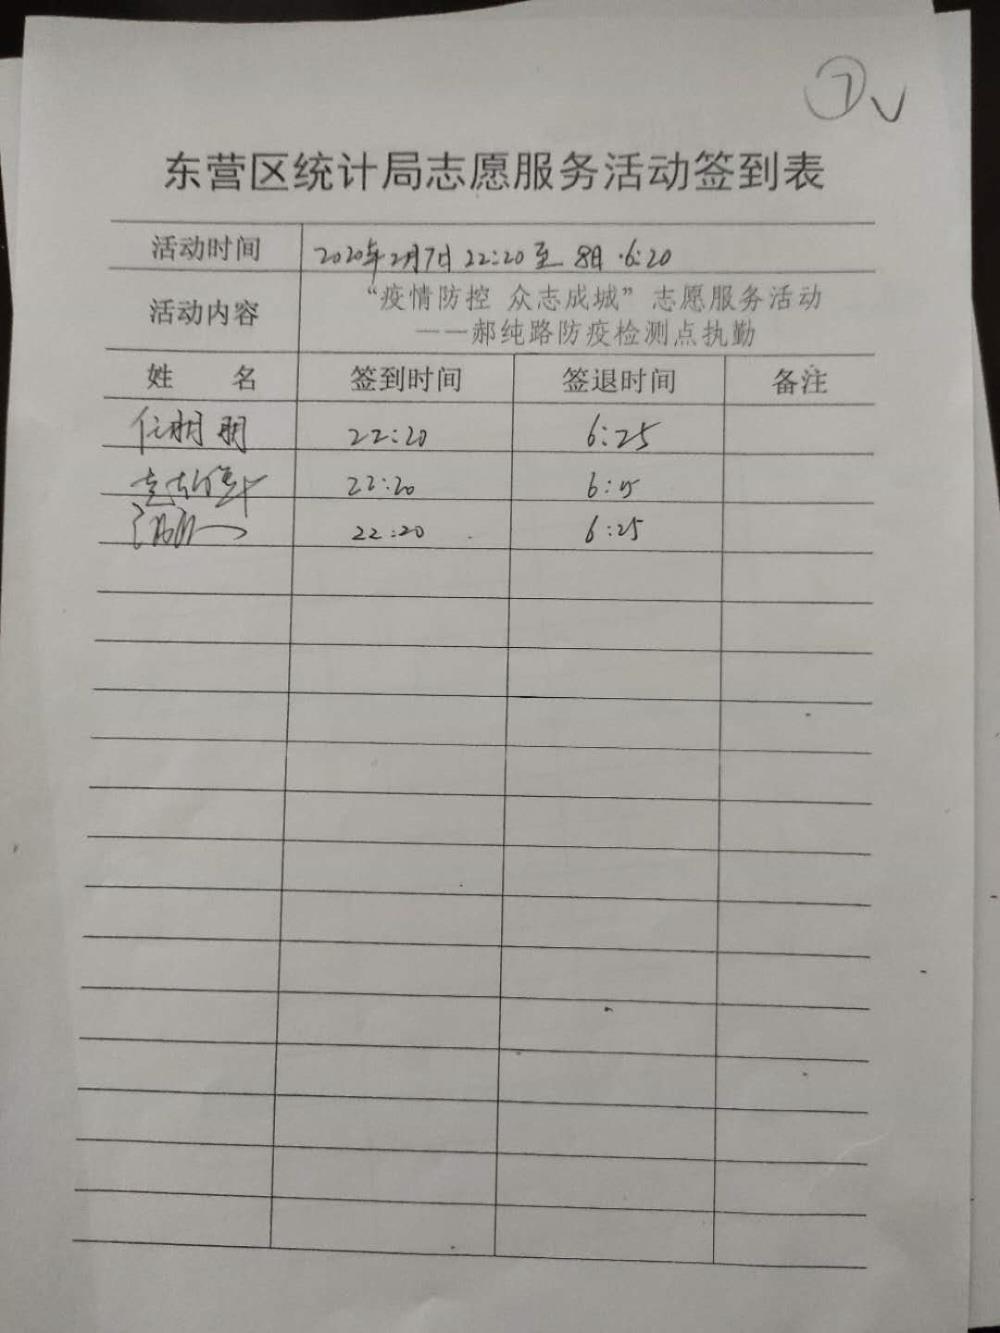 ⑦√
东营区统计局志愿服务活动签到表
活动时间 2020年2月7日 22:20至 8日 6:20
活动内容 “疫情防控 众志成城”志愿服务活动
——郝纯路防疫检测点执勤
姓 名 签到时间 签退时间 备注
任明明 22:20 6:25
22:20
22:20 6:25